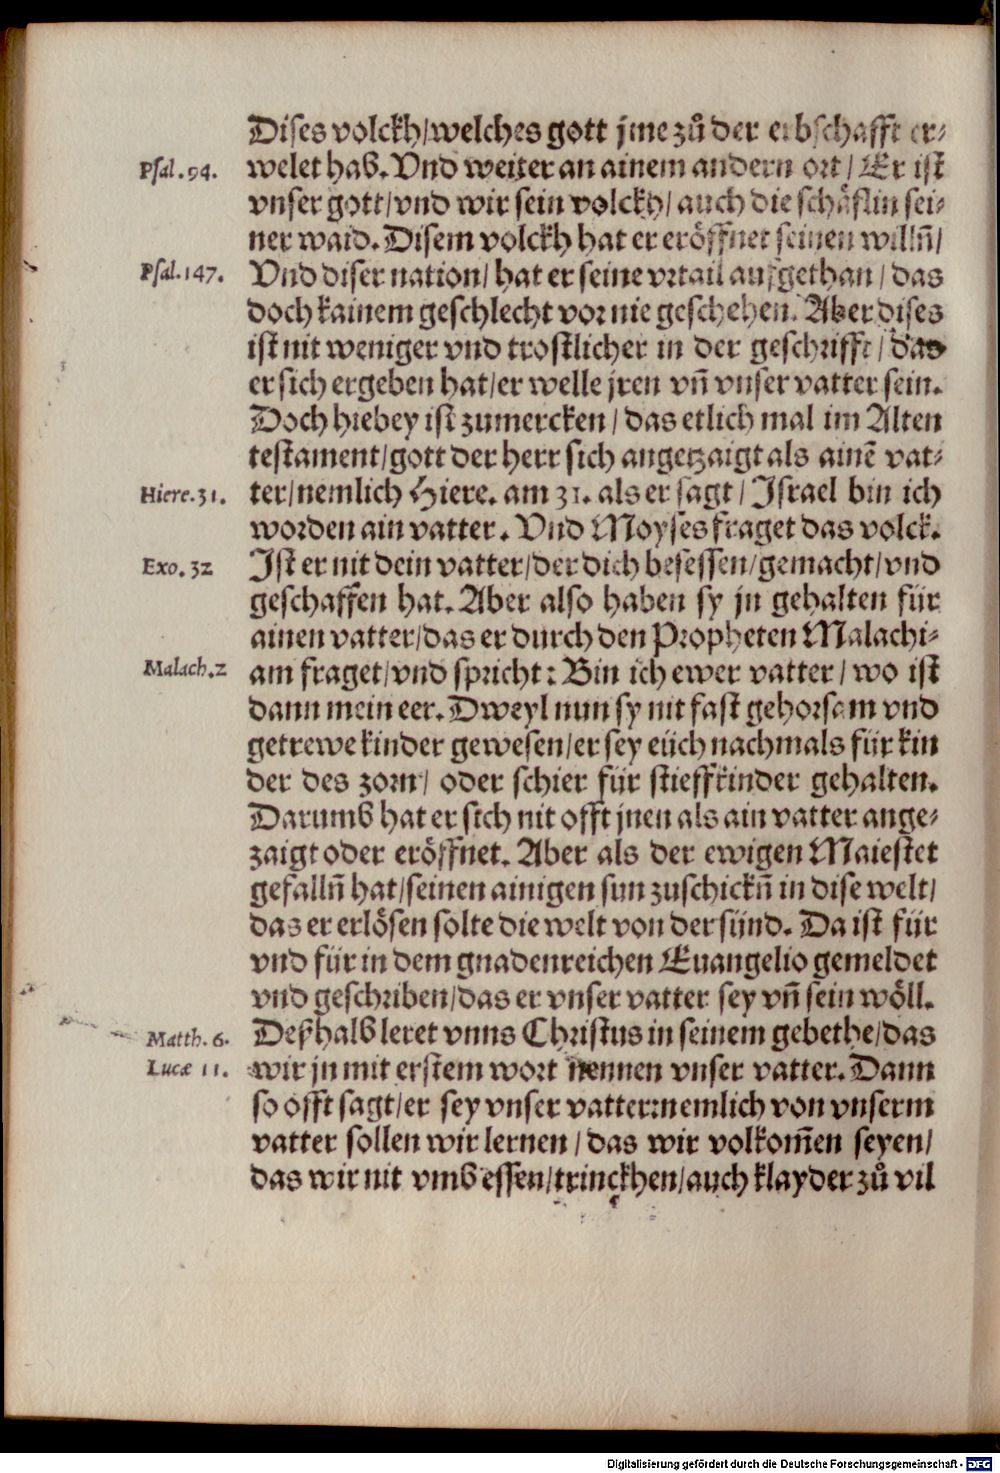 Dises volckh/welches gott jme zů der erbschafft er-
Psal.94. welet hab. Vnd weiter an ainem andern ort/ Er ist
vnser gott/vnd wir sein volckh/ auch die schäflin sei-
ner waid. Disem volckh hat er eröffnet seinen willn̄/
Psal.147. Vnd diser nation/ hat er seine vrtail aufgethan/ das
doch kainem geschlecht vor nie geschehen. Aber dises
ist nit weniger vnd trostlicher in der geschrifft/ das
er sich ergeben hat/er welle jren vn̄ vnser vatter sein.
Doch hiebey ist zumercken/ das etlich mal im Alten
testament/gott der herr sich angetzaigt als ainē vat-
Hiere.31. ter/nemlich Hiere. am 31. als er sagt/ Israel bin ich
worden ain vatter. Vnd Moyses fraget das volck.
Exo.32 Ist er nit dein vatter/der dich besessen/gemacht/vnd
geschaffen hat. Aber also haben sy jn gehalten für
ainen vatter/das er durch den Propheten Malachi-
Malach.2 am fraget/vnd spricht: Bin ich ewer vatter/ wo ist
dann mein eer. Dweyl nun sy nit fast gehorsam vnd
getrewe kinder gewesen/er sey eüch nachmals für kin
der des zorn/ oder schier für stieffkinder gehalten.
Darumb hat er sich nit offt jnen als ain vatter ange-
zaigt oder eröffnet. Aber als der ewigen Maiestet
gefalln̄ hat/seinen ainigen sun zuschickn̄ in dise welt/
das er erlösen solte die welt von der sünd. Da ist für
vnd für in dem gnadenreichen Euangelio gemeldet
vnd geschriben/das er vnser vatter sey vn̄ sein wöll.
Matth. 6. Deßhalb leret vnns Christus in seinem gebethe/das
Lucæ 11. wir jn mit erstem wort nennen vnser vatter. Dann
so offt sagt/er sey vnser vatter:nemlich von vnserm
vatter sollen wir lernen/ das wir volkom̄en seyen/
das wir nit vmb essen/trinckhen/auch klayder zů vil
Digitalisierung gefördert durch die Deutsche Forschungsgemeinschaft - DFG